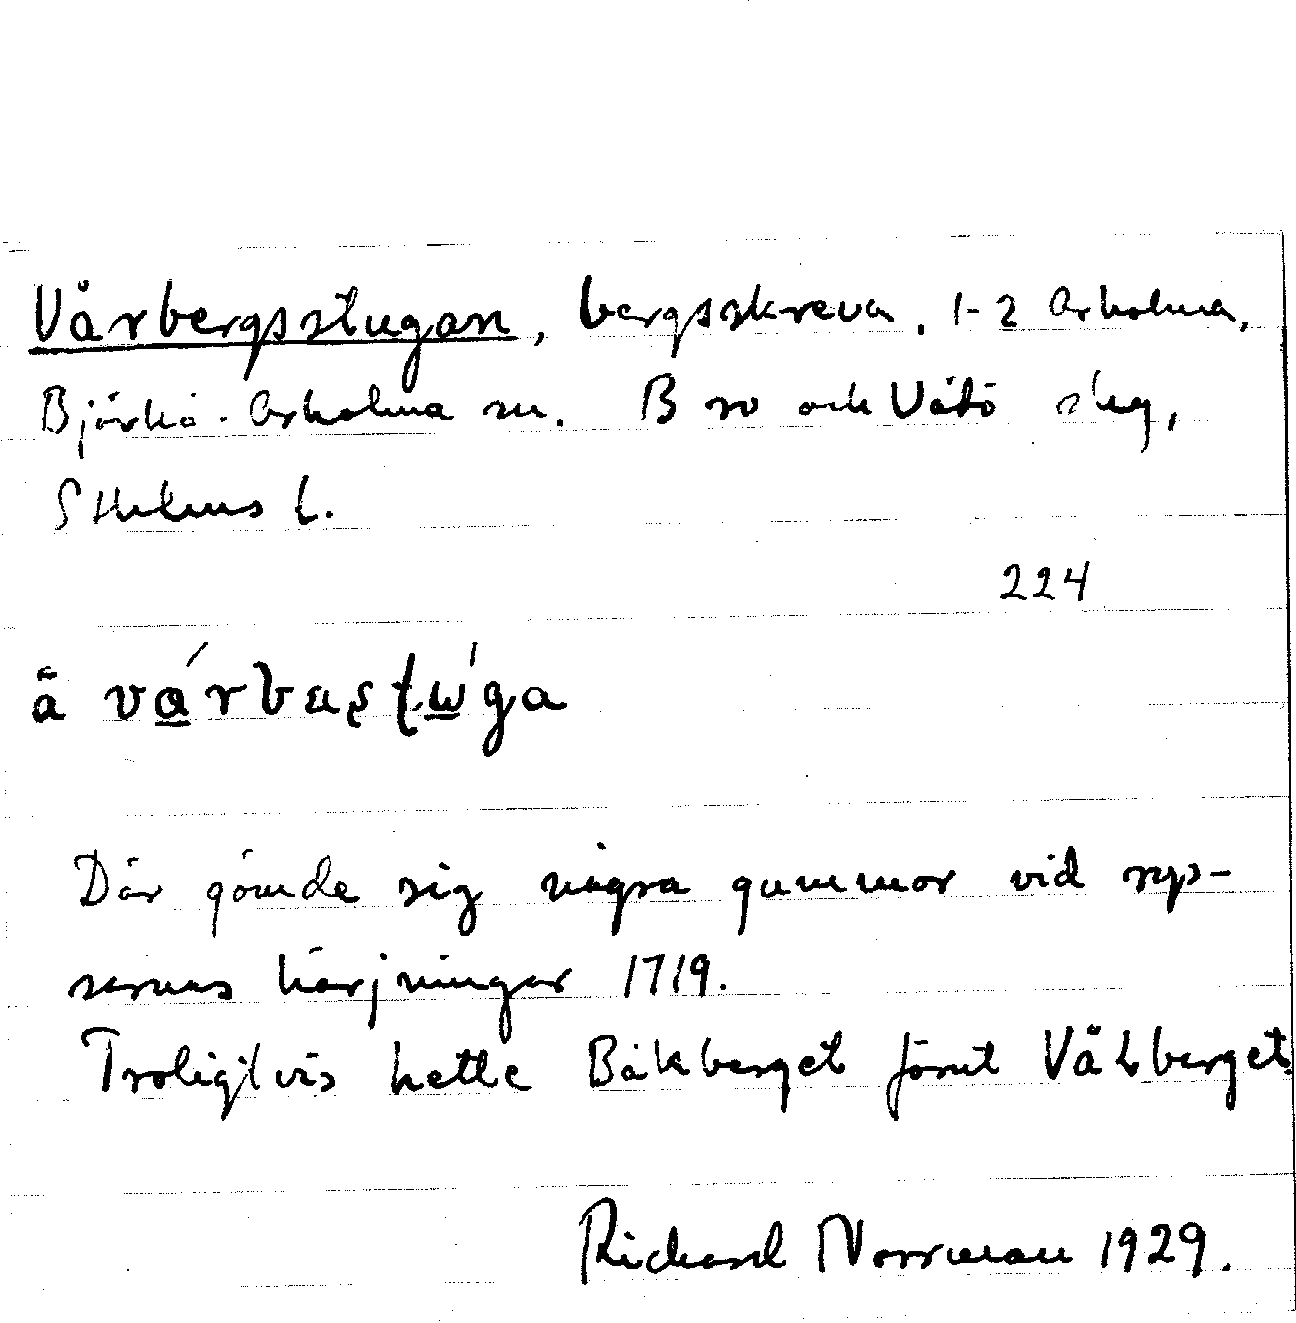 Vårbergsstugan, bergsskreva, 1-2 Arholma,
Björkö-Arholma sn. Bro och Vätö slg,
Sthlms l.
224
Där gömde sig några gummor vid rys-
sarnas härjningar 1719.
Troligtvis hette Båkberget förut Våhberget.
Richard Norrman 1929.